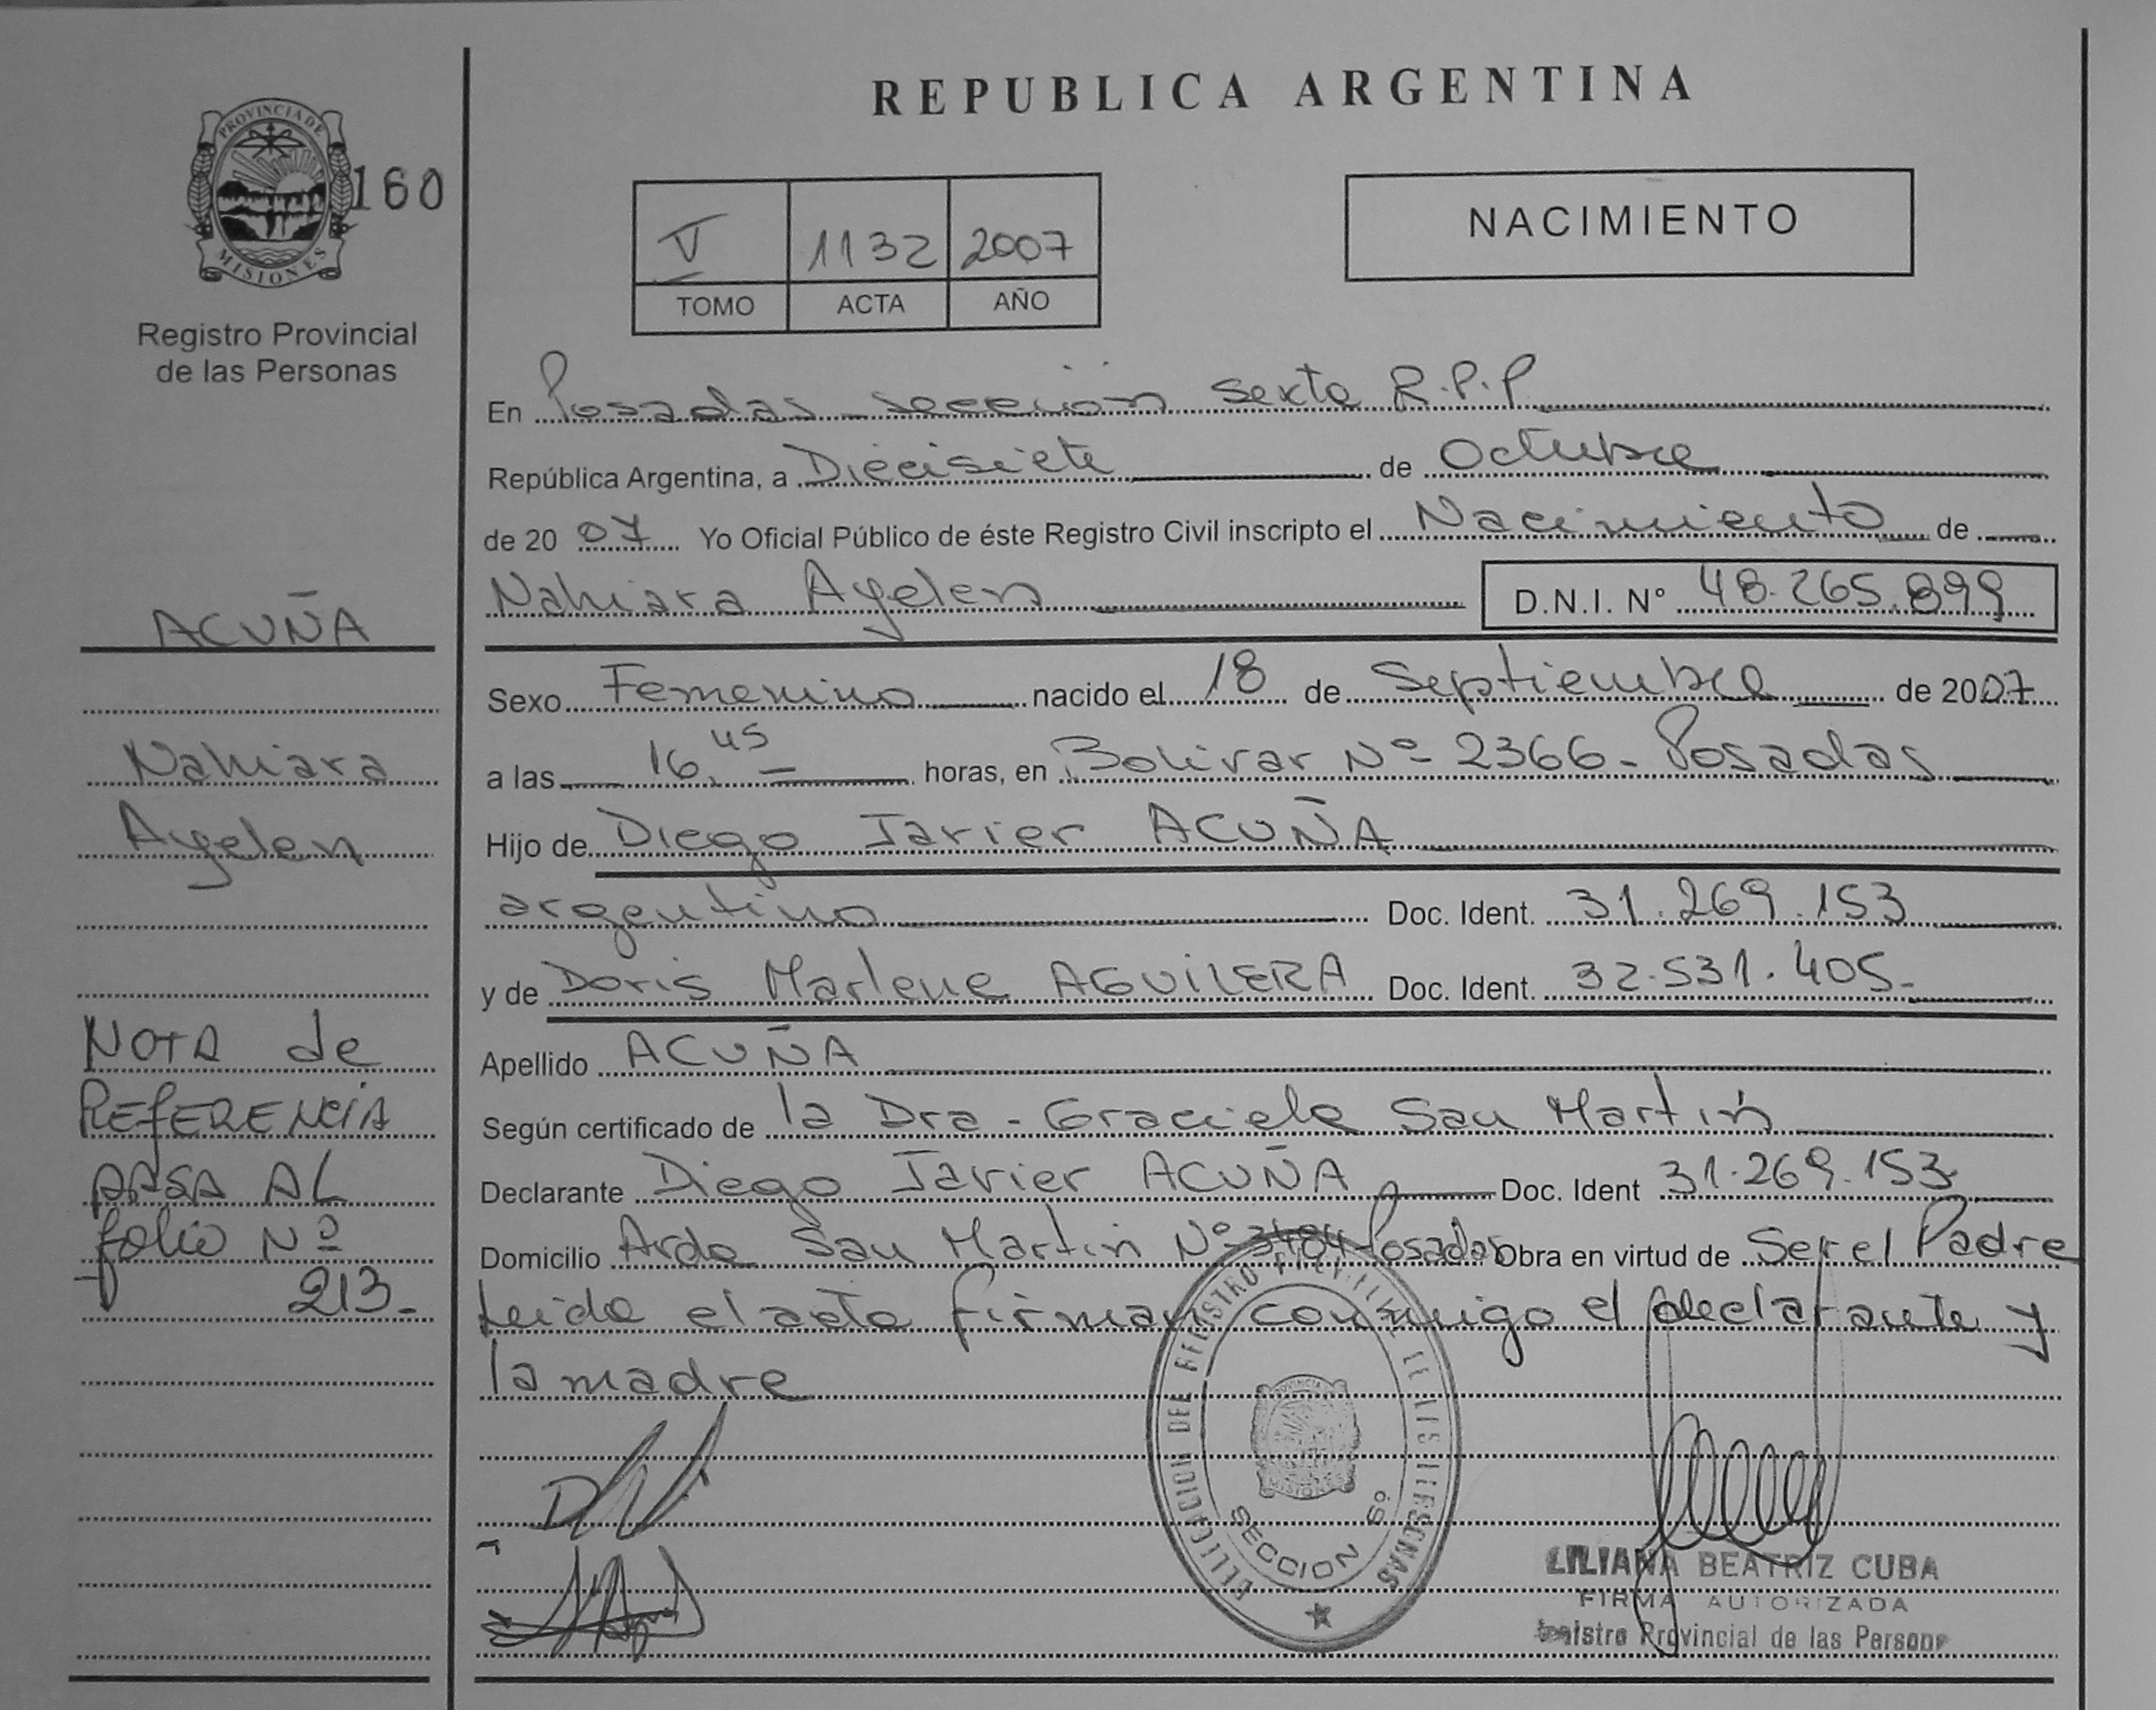 REPUBLICA ARGENTINA
PROVINCIA DE
MISIONES
160
Registro Provincial
de las Personas
V 1132 2007
TOMO ACTA AÑO
NACIMIENTO
En Posadas sección sexta R.P.P
República Argentina, a Diecisiete de Octubre
de 2007 Yo Oficial Público de éste Registro Civil inscripto el Nacimiento de
Nahiara Ayelen D.N.I. Nº 48.265.899
Sexo Femenino nacido el 18 de Septiembre de 2007
a las 16,45 horas, en Bolivar Nº 2366 - Posadas
Hijo de Diego Javier ACUÑA
argentino Doc. Ident. 31.269.153
y de Doris Marlene AGUILERA Doc. Ident. 32.531.405-
Apellido ACUÑA
Según certificado de la Dra - Graciela San Martin
Declarante Diego Javier ACUÑA Doc. Ident 31.269.153
Domicilio Avda San Martin Nº 3484 Posadas Obra en virtud de Ser el Padre
Leida el acta firman conmigo el declarante y
la madre
ACUÑA
Nahiara
Ayelen
NOTA de
REFERENCIA
PASA AL
folio Nº
213-
DELEGACION DEL REGISTRO PROVINCIAL DE LAS PERSONAS
PROVINCIA
MISIONES
SECCION 6º
LILIANA BEATRIZ CUBA
FIRMA AUTORIZADA
Registro Provincial de las Persona